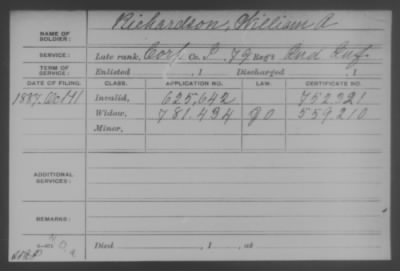 NAME OF SOLDIER: Richardson, William A
SERVICE: Late rank, Corp. Co. I, 79 Reg't Ind Inf.
TERM OF SERVICE: Enlisted , 1 Discharged , 1
DATE OF FILING. CLASS. APPLICATION NO. LAW. CERTIFICATE NO.
1887, Oct 11 Invalid, 625,642 752,321
Widow, 781,434 90 559,210
Minor,
ADDITIONAL SERVICES:
REMARKS:
Died , 1 , at